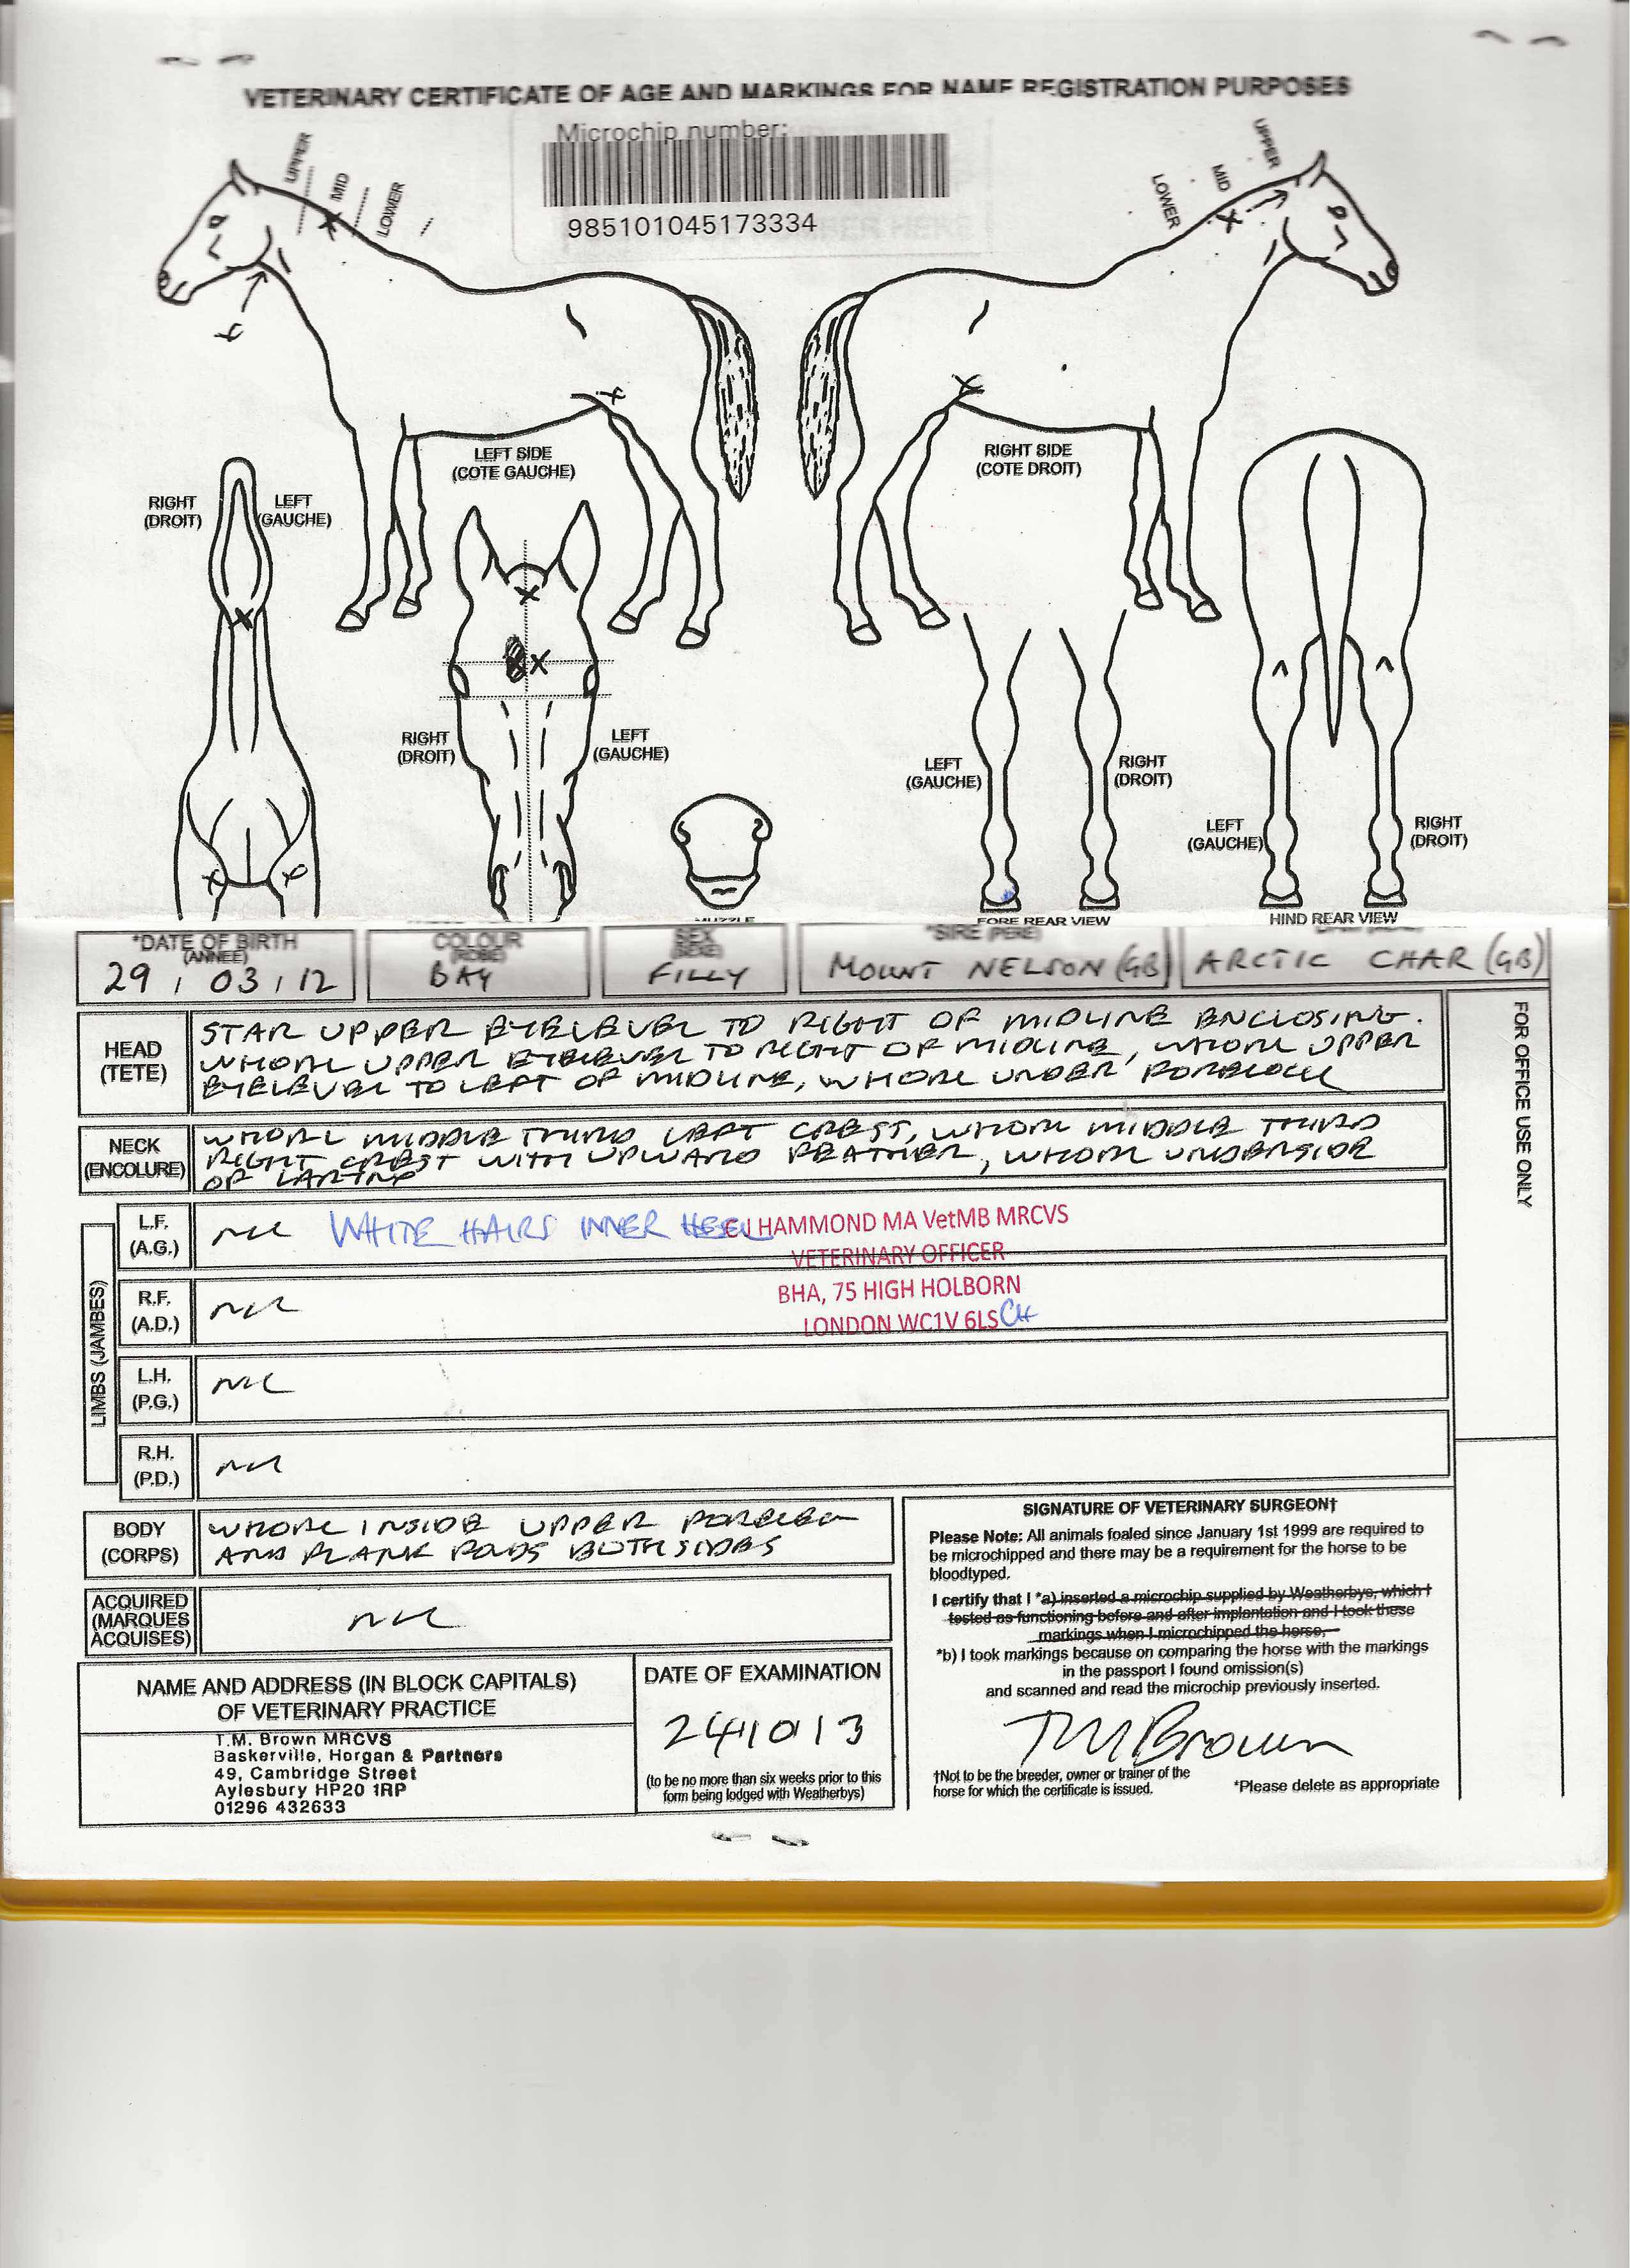 VETERINARY CERTIFICATE OF AGE AND MARKINGS FOR NAME REGISTRATION PURPOSES
Microchip number:
985101045173334
UPPER
MID
LOWER
UPPER
MID
LOWER
LEFT SIDE
(COTE GAUCHE)
RIGHT SIDE
(COTE DROIT)
RIGHT
(DROIT)
LEFT
(GAUCHE)
RIGHT
(DROIT)
LEFT
(GAUCHE)
LEFT
(GAUCHE)
RIGHT
(DROIT)
LEFT
(GAUCHE)
RIGHT
(DROIT)
MUZZLE
FORE REAR VIEW
HIND REAR VIEW
*DATE OF BIRTH
(ANNEE)
29 / 03 / 12
COLOUR
(ROBE)
BAY
SEX
(SEXE)
FILLY
*SIRE (PERE)
MOUNT NELSON (GB)
ARCTIC CHAR (GB)
FOR OFFICE USE ONLY
HEAD
(TETE)
STAR UPPER EYELEVEL TO RIGHT OF MIDLINE ENCLOSING.
WHORL UPPER EYELEVEL TO RIGHT OF MIDLINE, WHORL UPPER
EYELEVEL TO LEFT OF MIDLINE, WHORL UNDER FORELOCK
NECK
(ENCOLURE)
WHORL MIDDLE THIRD LEFT CREST, WHORL MIDDLE THIRD
RIGHT CREST WITH UPWARD FEATHER, WHORL UNDERSIDE
OF LARYNX
LIMBS (JAMBES)
L.F.
(A.G.)
NIL WHITE HAIRS INNER HEEL
C J HAMMOND MA VetMB MRCVS
VETERINARY OFFICER
BHA, 75 HIGH HOLBORN
LONDON WC1V 6LS CH
R.F.
(A.D.)
NIL
L.H.
(P.G.)
NIL
R.H.
(P.D.)
NIL
BODY
(CORPS)
WHORL INSIDE UPPER FORELEG
AND FLANK FOLDS BOTH SIDES
ACQUIRED
(MARQUES
ACQUISES)
NIL
NAME AND ADDRESS (IN BLOCK CAPITALS)
OF VETERINARY PRACTICE
T.M. Brown MRCVS
Baskerville, Horgan & Partners
49, Cambridge Street
Aylesbury HP20 1RP
01296 432633
DATE OF EXAMINATION
241013
(to be no more than six weeks prior to this
form being lodged with Weatherbys)
SIGNATURE OF VETERINARY SURGEON†
Please Note: All animals foaled since January 1st 1999 are required to
be microchipped and there may be a requirement for the horse to be
bloodtyped.
I certify that I *a) inserted a microchip supplied by Weatherbys, which I
tested as functioning before and after implantation and I took these
markings when I microchipped the horse,
*b) I took markings because on comparing the horse with the markings
in the passport I found omission(s)
and scanned and read the microchip previously inserted.
TM Brown
†Not to be the breeder, owner or trainer of the
horse for which the certificate is issued.
*Please delete as appropriate